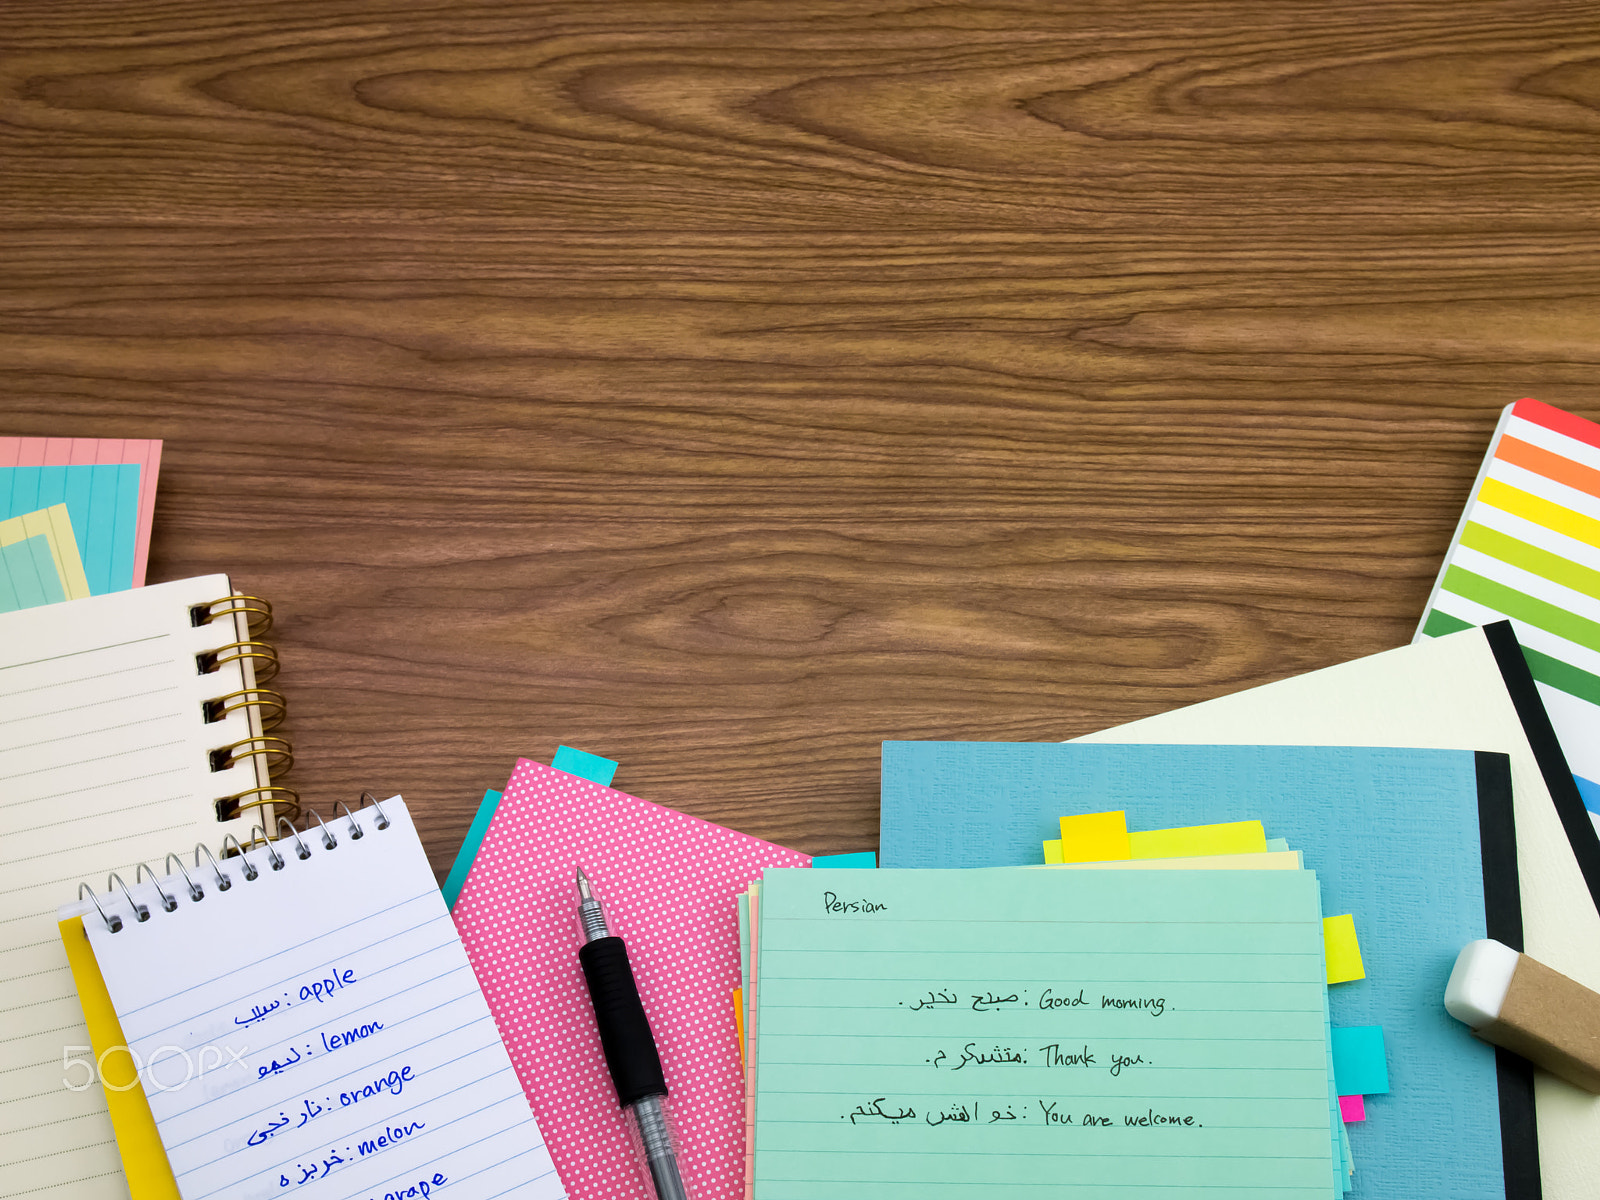 سیب : apple
لیمو : lemon
نارنجی : orange
خربزه : melon
grape
Persian
صبح بخیر. : Good morning.
متشکرم. : Thank you.
خواهش میکنم. : You are welcome.
500px